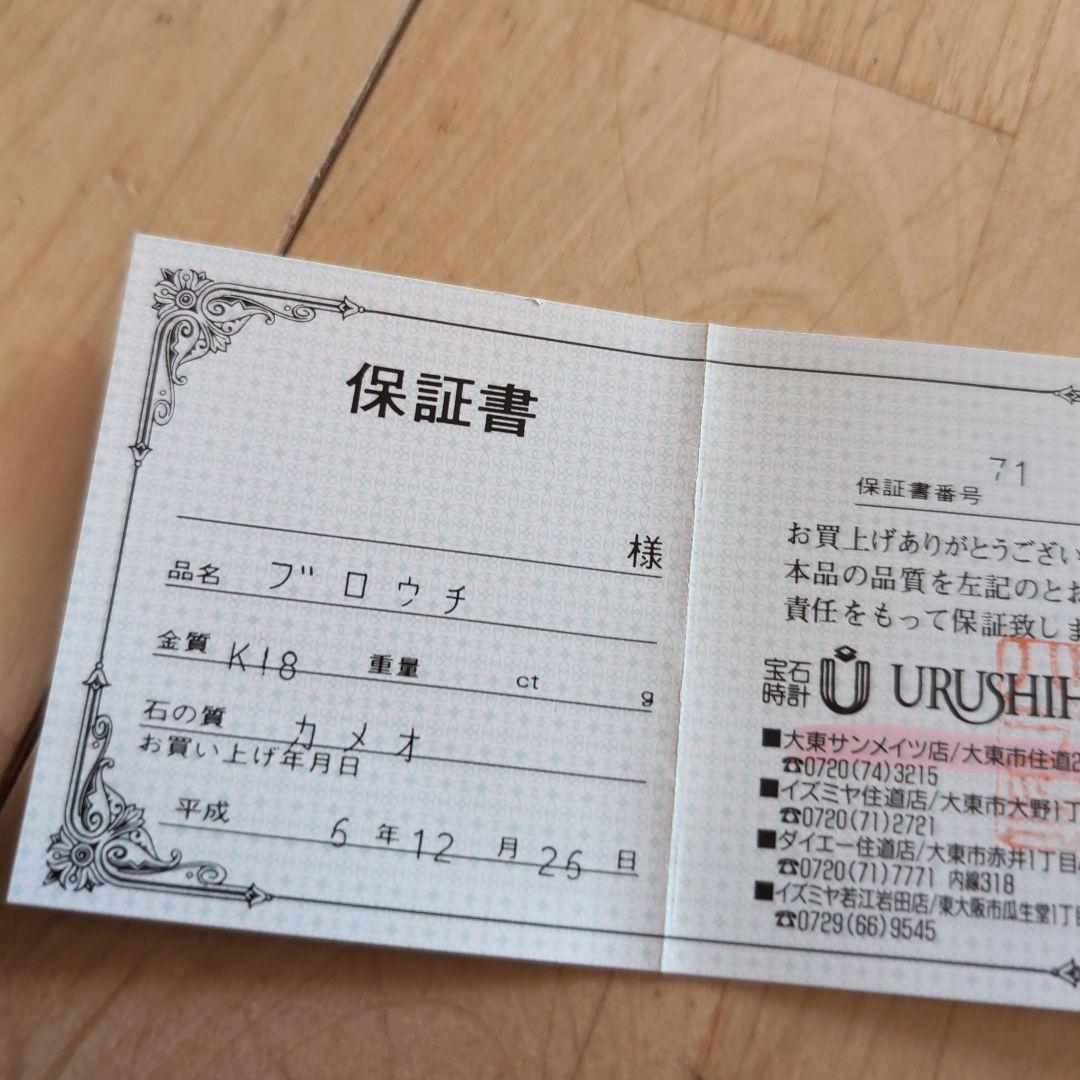 保証書
様
品名 ブロウチ
金質 K18 重量 ct g
石の質 カメオ
お買い上げ年月日
平成 6 年 12 月 26 日
保証書番号 71
お買上げありがとうござい
本品の品質を左記のとお
責任をもって保証致しま
宝石時計 URUSHIH
■大東サンメイツ店/大東市住道2
☎0720(74)3215
■イズミヤ住道店/大東市大野1丁
☎0720(71)2721
■ダイエー住道店/大東市赤井1丁目
☎0720(71)7771 内線318
■イズミヤ若江岩田店/東大阪市瓜生堂1丁目
☎0729(66)9545